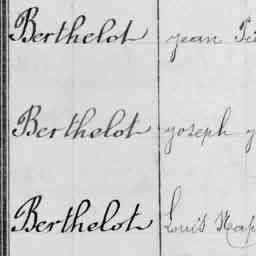 Berthelot jean
Berthelot joseph
Berthelot Louis Nap